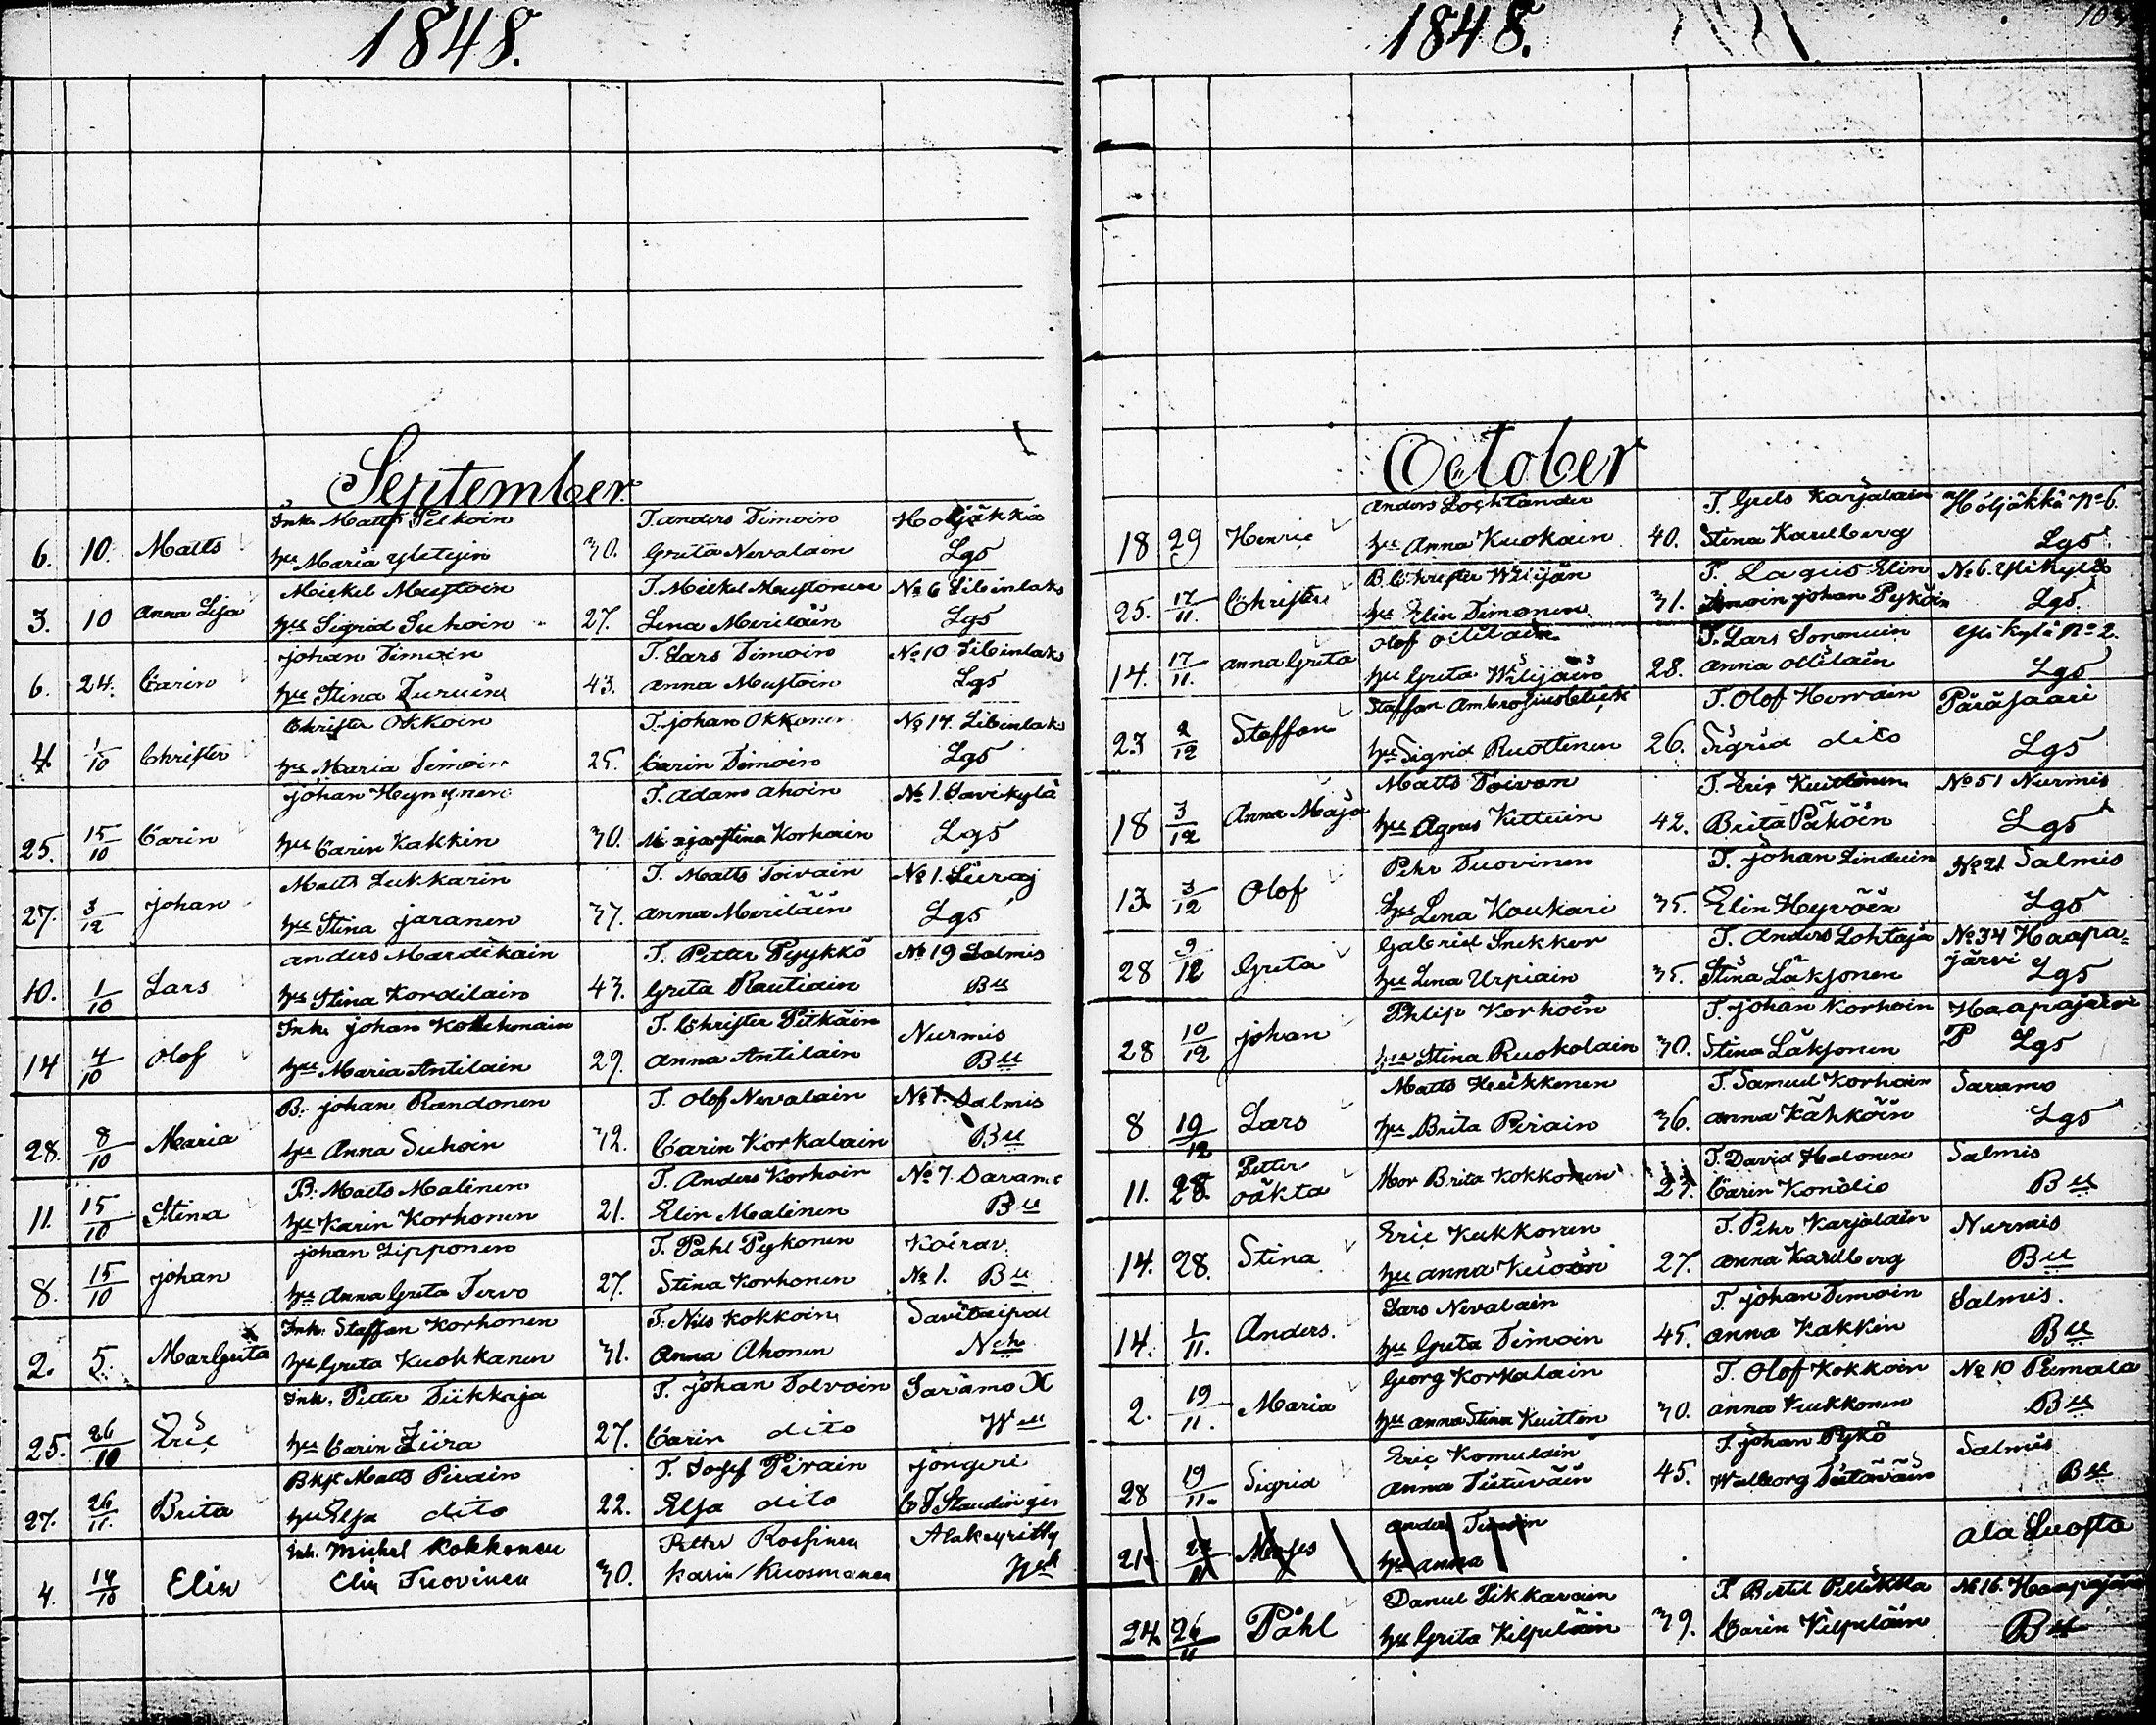 1848.
September
Inh. Matts Pilkoin T. Anders Timoin Höljäkkä
6. 10. Matts hu Maria Yletyin 30. Greta Nevalain Lgs
Mickel Mustoin T. Mickel Mustonen No 6 Libinlaks
3. 10 Anna Lisa hu Sigrid Suhoin 27. Lena Meriläin Lgs
Johan Timoin T. Lars Timoin No 10 Libinlaks
6. 24. Carin hu Stina Turuin 43. Anna Mustoin Lgs
Christer Okkoin T. Johan Okkonen No 14. Libinlaks
4. 1/10 Christer hu Maria Timoin 25. Carin Timoin Lgs
Johan Heynynen T. Adam Ahoin No 1. Savikylä
25. 15/10 Carin hu Carin Kakkin 30. Maja Stina Korhoin Lgs
Matts Lukkarin T. Matts Toivain No 1.
27. 3/12 Johan hu Stina Jaranen 37. Anna Meriläin Lgs
Anders Mardikain T. Petter Pyykkö No 19 Salmis
10. 1/10 Lars hu Stina Kordilain 43. Greta Rautiain Bu
Inh. Johan T. Christer Pitkäin Nurmis
14 4/10 Olof hu Maria Antilain 29. Anna Antilain Bu
B. Johan Randonen T. Olof Nevalain No 7. Salmis
28. 8/10 Maria hu Anna Suhoin 32. Carin Korkalain Bu
B. Matts Malinen T. Anders Korhoin No 7. Saramo
11. 15/10 Stina hu Karin Korhonen 21. Elin Malinen Bu
Johan Lipponen T. Påhl Pykonen Koirav.
8. 15/10 Johan hu Anna Greta Tervo 27. Stina Korhonen No 1. Bu
Inh. Staffan Korhonen T. Nils Kokkoin Savitaipal
2. 5. MarGreta hu Greta Kuokkanen 31. Anna Ahonen
Inh. Petter Tiikkaja T. Johan Tolvoin Saramo
25. 26/10 Eric hu Carin Ziira 27. Carin dito
Bkr Matts Pirain T. Josef Pirain Jongeri
27. 26/11. Brita hu Elsa dito 22. Elsa dito
Inh. Michel Kokkonen Petter Rossinen Alakeyritty
4. 14/10 Elin Elin Tuovinen 30. Karin Kuosmanen
1848.
October
Anders Lochtander T. Gels Karjalain Höljäkkä No 6.
18 29 Henric hu Anna Kuokain 40. Stina Karlberg Lgs
B. Christer Wäijän T. Lagus Elin No 6. Ylikylä
25. 17/11. Christer hu Elin Timonen 31. Timoin Johan Pyköin Lgs
Olof Ollilain T. Lars Sormuin Yli kylä No 2.
14. 17/11. Anna Greta hu Greta Wäijäin 28. Anna Ollilain Lgs
Staffan Ambrosius T. Olof Hervain
23 2/12 Staffan hu Sigrid Ruottinen 26. Sigrid dito Lgs
Matts Toivan T. Eric Kuittinen No 51 Nurmis
18 3/12 Anna Maja hu Agnes Kettuin 42. Brita Päköin Lgs
Pehr Tuovinen T. Johan Linduin No 21 Salmis
13. 3/12 Olof hu Lena Koukari 35. Elin Hyvöin Lgs
Gabriel Snekker T. Anders Lohtaja No 34 Haapa=
28 9/12 Greta hu Lena Urpiain 35. Stina Läksonen järvi Lgs
Philip Korhoin T. Johan Korhoin Haapajärvi
28 10/12 Johan hu Stina Ruokolain 30. Stina Läksonen P Lgs
Matts Heikkenen T. Samuel Korhoin Saramo
8 19/12 Lars hu Brita Pirain 36. Anna Kähköin Lgs
Petter T. David Halonen Salmis
11. 28. oäkta Mor Brita Kokkonen 27. Carin Kondio Bu
Eric Kukkonen T. Pehr Karjalain Nurmis
14. 28. Stina hu Anna 27. Anna Karlberg Bu
Lars Nevalain T. Johan Timoin Salmis.
14. 1/11. Anders. hu Greta Timoin 45. Anna Kakkin Bu
Georg Korkalain T. Olof Kokkoin No 10 Pumala
2. 19/11. Maria hu Anna Stina Kuittin 30. Anna Kukkonen Bu
Eric Komulain T. Johan Pykö Salmis
28 19/11. Sigrid Anna Tiitiväin 45. Walborg Bu
Anders Timoin Ala Luosta
21. hu Anna
Daniel Tikkarain T. Bertil Pillikka No 16. Haapajärvi
24 26/11 Påhl hu Greta Kilpeläin 39. Carin Kilpeläin Bu